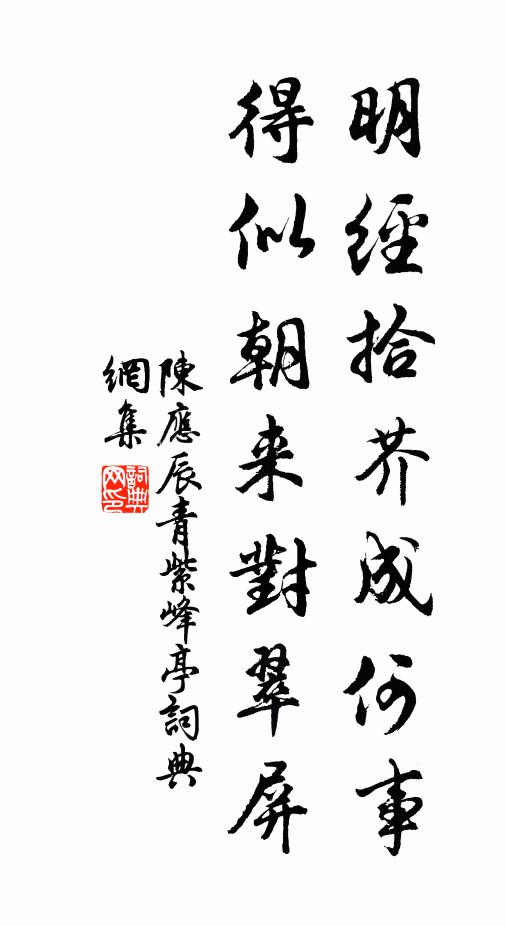 明經拾芥成何事
得似朝来對翠屏
陳應辰青紫峰亭詞典
網集
詞典
网印